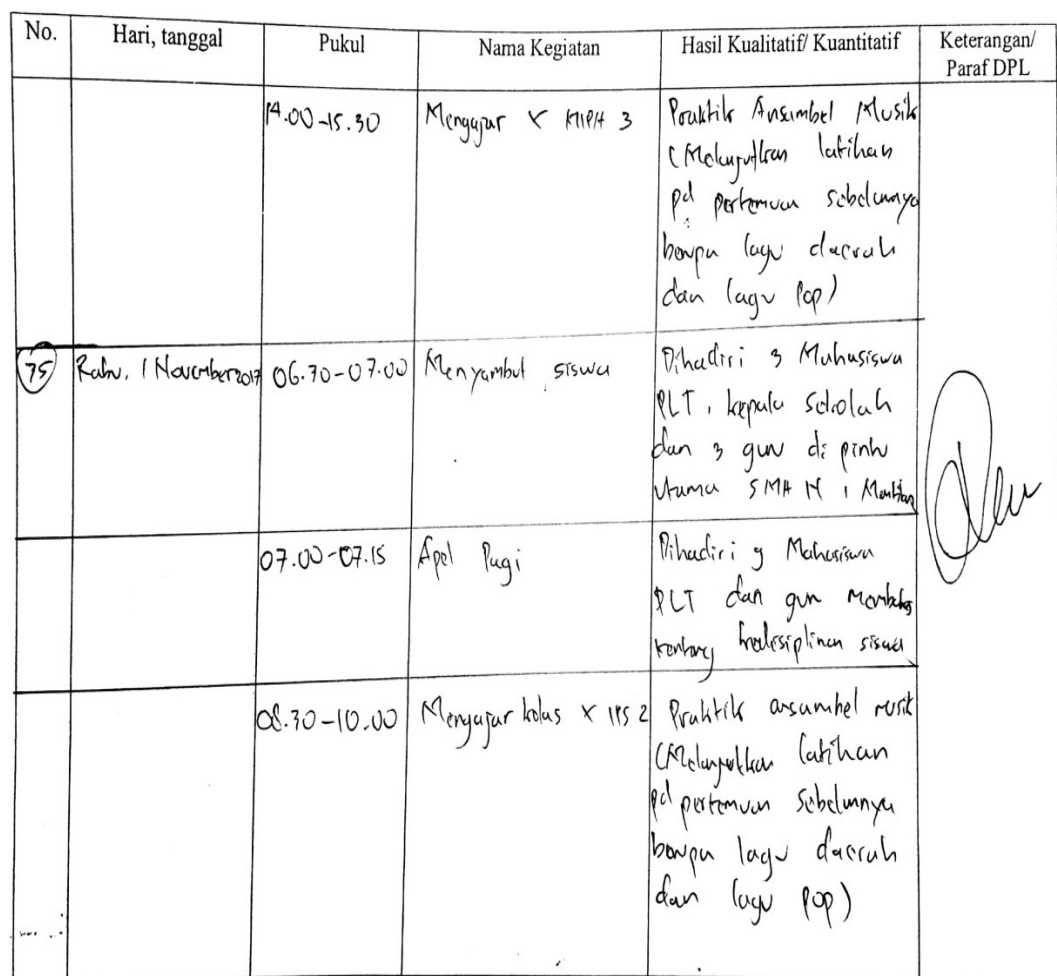 No.
Hari, tanggal
Pukul
Nama Kegiatan
Hasil Kualitatif/ Kuantitatif
Keterangan/
Paraf DPL
14.00-15.30
Mengajar X MIPA 3
Praktik Ansambel Musik
(Melanjutkan latihan
pd pertemuan sebelumnya
berupa lagu daerah
dan lagu Pop)
75
Rabu, 1 November 2017
06.30-07.00
Menyambut siswa
Dihadiri 3 Mahasiswa
PLT, kepala sekolah
dan 3 guru di pintu
Utama SMA N 1
07.00-07.15
Apel Pagi
Dihadiri 9 Mahasiswa
PLT dan guru Membahas
tentang kedisiplinan siswa
08.30-10.00
Mengajar kelas X IPS 2
Praktik ansambel musik
(Melanjutkan latihan
pd pertemuan sebelumnya
berupa lagu daerah
dan lagu pop)